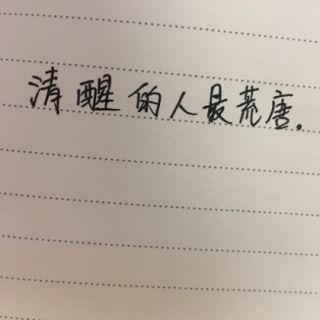 清醒的人最荒唐.